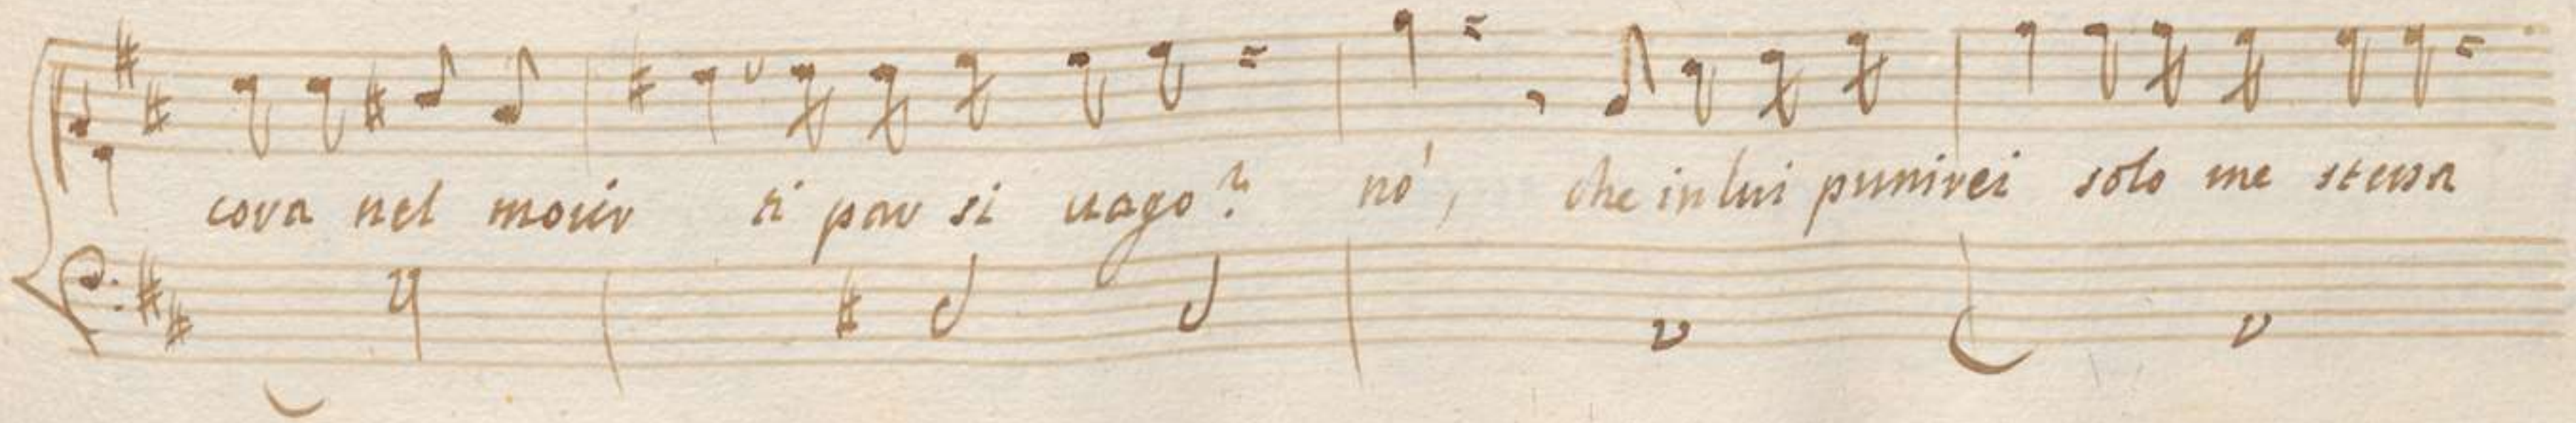 cora nel morir ti par si uago? nò, che in lui punirei solo me stessa